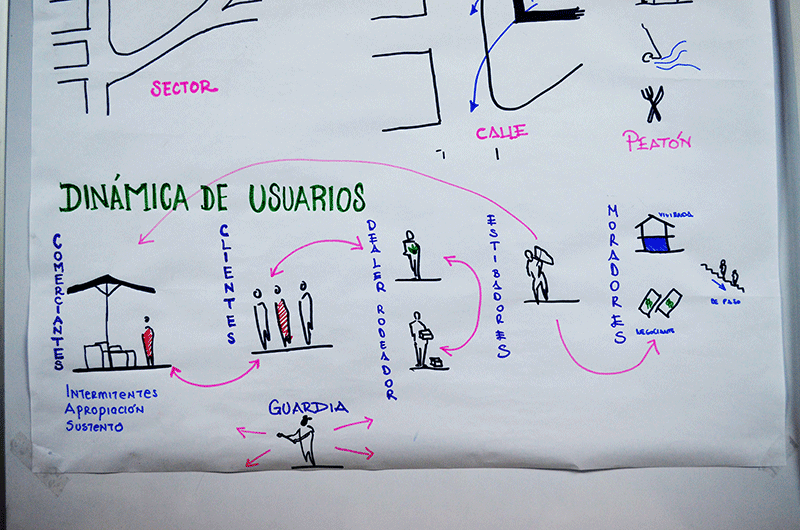 SECTOR
CALLE
PEATÓN
DINÁMICA DE USUARIOS
COMERCIANTES
CLIENTES
DEALER RODEADOR
ESTIBADORES
MORADORES
VIVIENDA
DE PASO
NEGOCIANTE
INTERMITENTES
APROPIACIÓN
SUSTENTO
GUARDIA